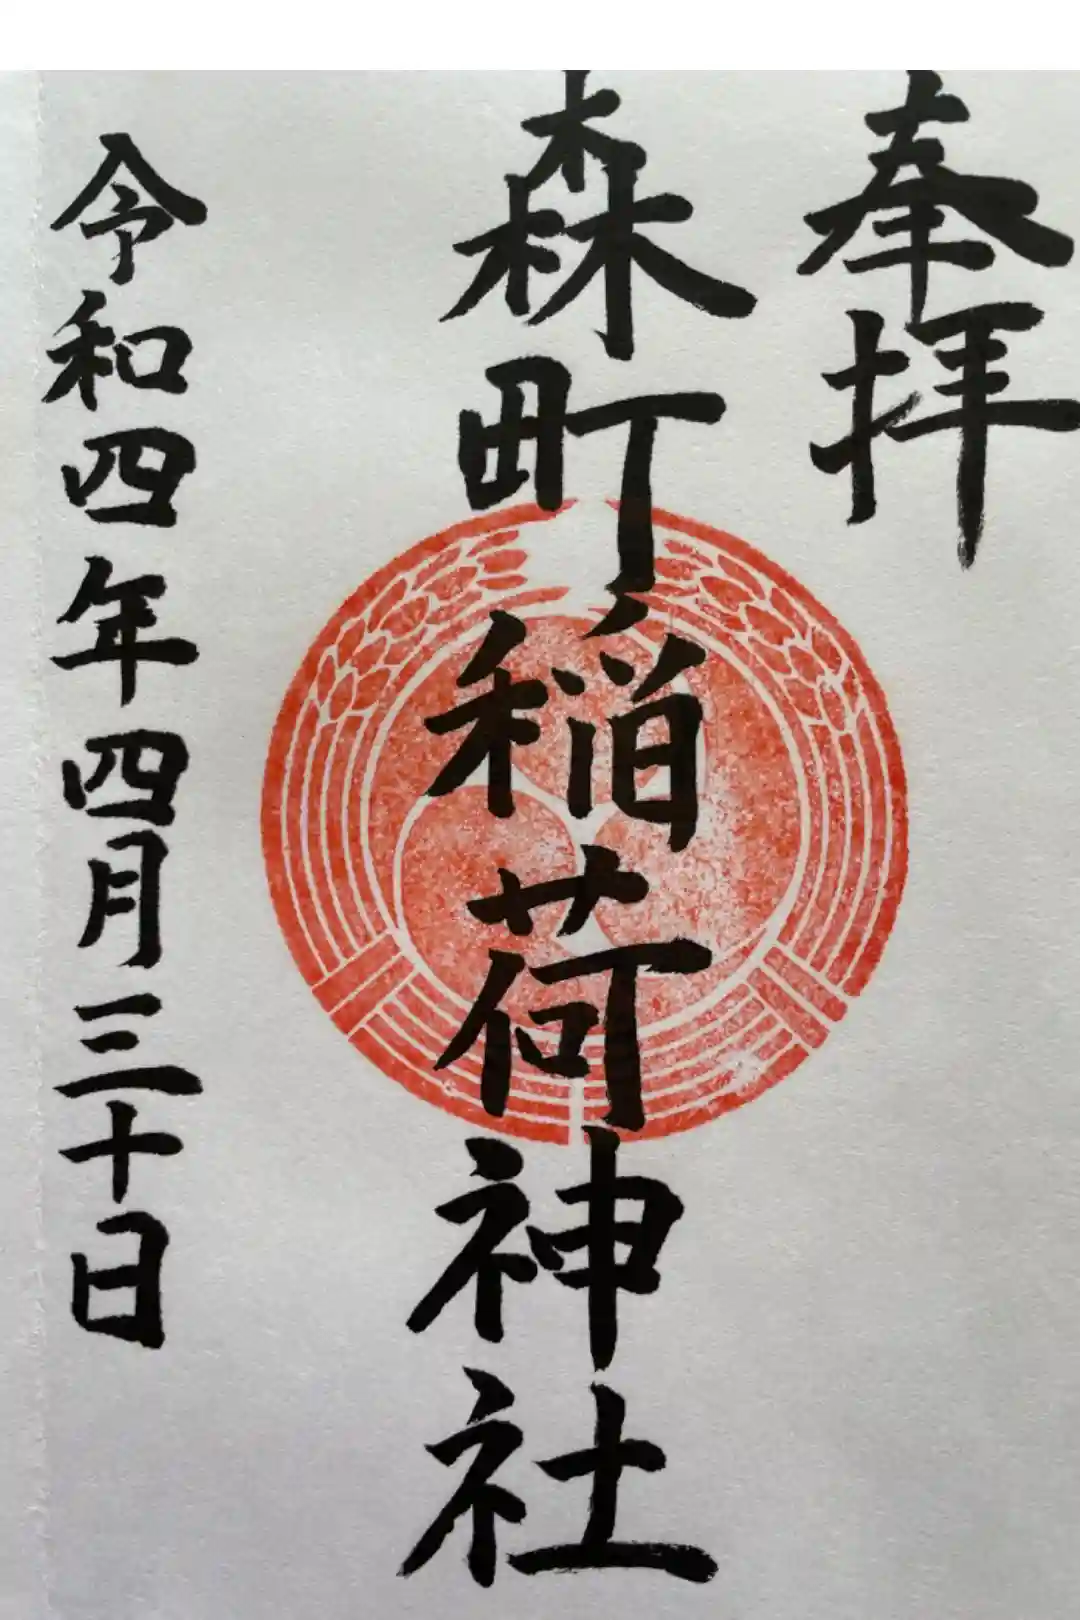 奉拝
森町稲荷神社
令和四年四月三十日